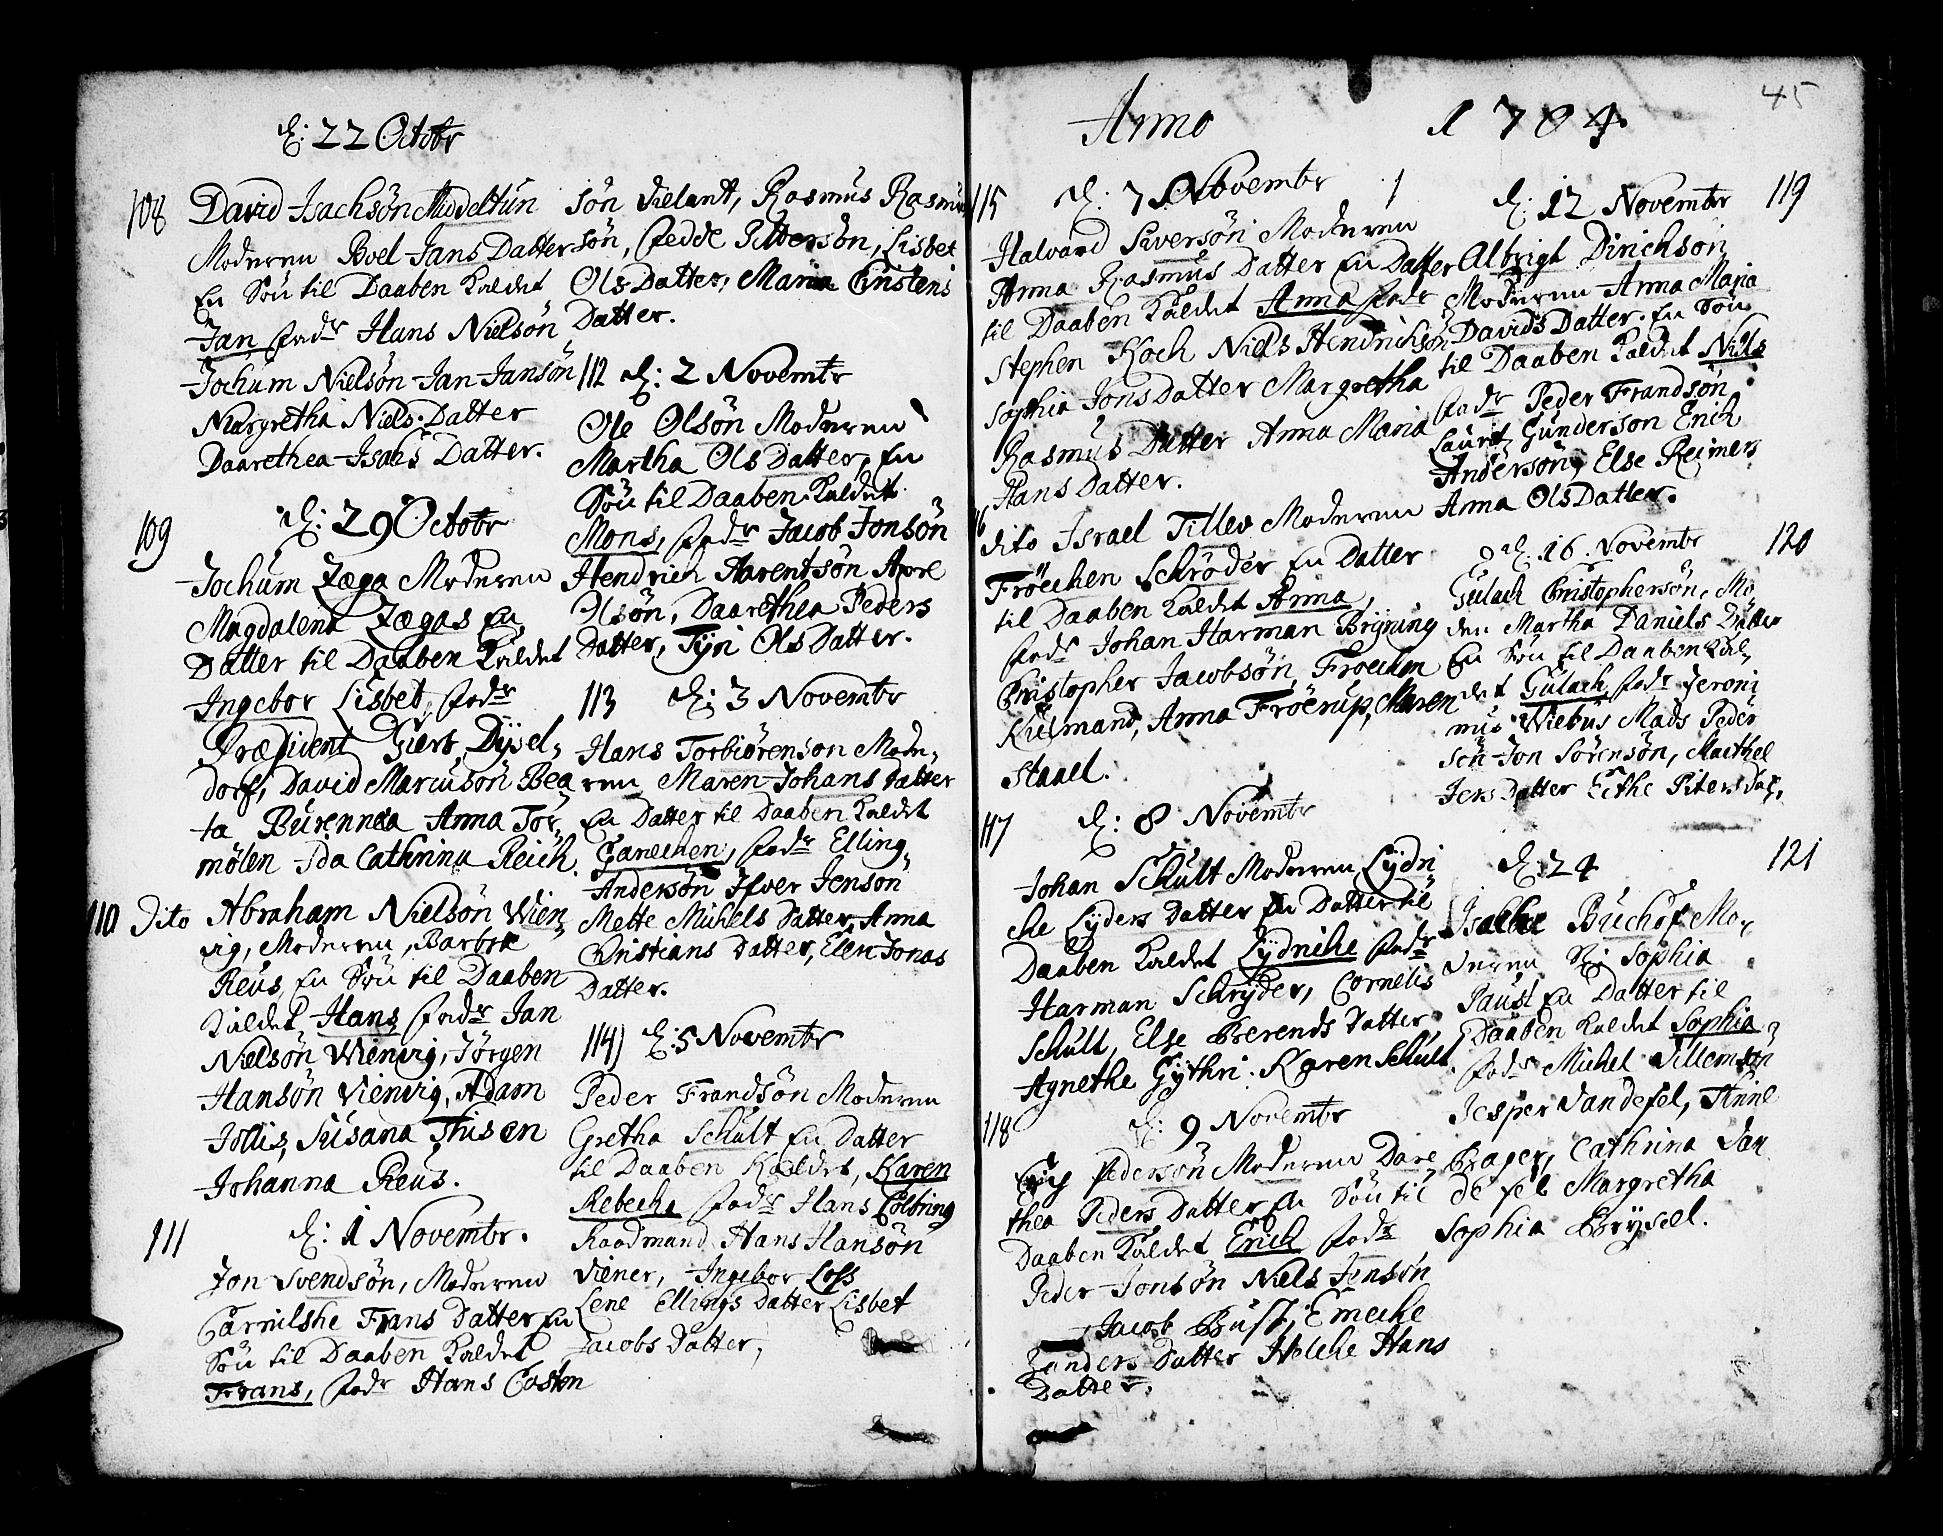 d: 22 Octobr
108
David Jachsön Middeltun
Moderen Boel Jans Datter
En Sön til Daaben Kaldet
Jan fadr Hans Nielsön
Jochum Nielsön Jan Jansön
Margretha Niels Datter
Daarethea Isahs Datter.
d: 29 Octobr
109
Jochum Zæga Moderen
Magdalena Zægas En
Datter til Daaben Kaldet
Ingebor Lisbet, fadr
Præsident Giert Dÿsel,
dorf, David Marcusön Bea
ta Burennea Anna Tor,
mölen Ida Cathrina Reich.
110 Dito Abraham Nielsön Wien,
vig, Moderen, Barbra
Reus En Sön til Daaben
Kaldet Hans fadr Jan
Nielsön Wienvig, Jörgen
Hansön Vienvig, Adam
Jollis, Susana Thisen
Johanna Reus.
111
d: 1 Novembr.
Jon Svendsön, Moderen
Carnilshe Frans Datter En
Sön til Daaben Kaldet
Frans, fadr Hans Costen
sön Vielant, Rasmus Rasmu
sön, Fedde Pittersön, Lisbet
Ols Datter, Maria Cristens
Datter.
112 d: 2 Novembr
Ole Olsön Moderen
Martha Ols Datter, En
Sön til Daaben Kaldet
Mons, fadr Jacob Jonsön
Hendrich Aarentsön Apre
Olsön, Daarethea Peders
Datter, Tÿri Ols Datter.
113 d: 3 Novembr
Hans Torbiörenson Mode,
ren Maren Johans Datter
En Datter til Daaben Kaldet
Ganechen, fadr Elling,
Andersön Ifver Jenson
Mette Michels Datter, Anna
Cristians Datter, Elen Jonas
Datter.
114) d: 5 Novembr
Peder Frandsön Moderen
Gretha Schult En Datter
til Daaben Kaldet, Karen
Rebecha fadr Hans Colbring
Raadmand Hans Hansön
Viener, Ingebor Loss
Lene Ellings Datter Lisbet
Jacobs Datter,
Anno 1704
45
115
d: 7 Novembr
Halvard Siversön Moderen
Anna Rasmus Datter En Datter
til Daaben Kaldet Anna fadr
Stephen Koch Niels Hendrichsön
Sophia Jons Datter Margretha
Rasmus Datter Anna Maria
Hans Datter.
16
dito Israel Tillev Moderen
Fröechen Schröder En Datter
til Daaben Kaldet Anna,
fadr Johan Harman Brÿning
Cristopher Jacobsön, Froechen
Kulmand, Anna Fröerup, Maren
Staael.
117
d: 8 Novembr
Johan Schult Moderen Lÿdri
che Lÿders Datter En Datter til
Daaben Kaldet Lÿdriche fadr
Harman Schrÿder, Cornelis
Schult, Else Berends Datter,
Agnethe Gÿthri. Karen Schult.
118
d: 9 Novembr
Erich Pedersön Moderen Dare
thea Peders Datter En Sön til
Daaben Kaldet Erich fadr
Peder Jonsön Niels Jensön
Jacob Bust, Emeche
Zanders Datter Helche Hans
Datter.
d: 12 Novembr
119
Albrigt Dirichsön
Moderen Anna Maria
Davids Datter. En Sön
til Daaben Kaldet Niels
fadr Peder Frandsön
Laurit Gunderson Erich
Andersön, Else Reimers
Anna Ols Datter.
d: 16. Novembr
120
Gulach Cristophersön, Mo,
den Martha Daniels Datter
En Sön til Daaben Kal,
det Gulach fadr Jeroni
mus Wiebus Mads Peder
sön Jon Sörensön, Marthe
Jers Datter Eithe Piters Dat,
d: 24
121
Buchof Mo,
deren Sophia
Paust En Datter til
Daaben Kaldet Sophia
fadr Michel Villemsön
Jesper Vandefel, Thine
Brager, Cathrina Van
de fel Margretha
Sophia Brÿsael.